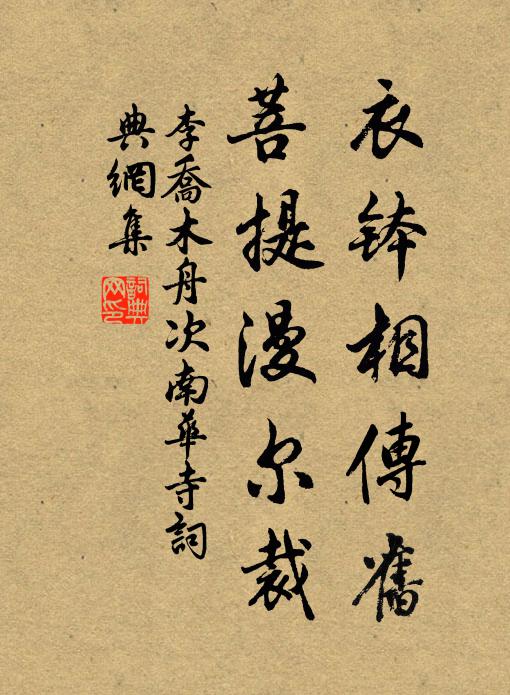 衣鉢相傳舊
菩提漫尔裁
李喬木舟次南華寺詞
典網集
詞典
网印